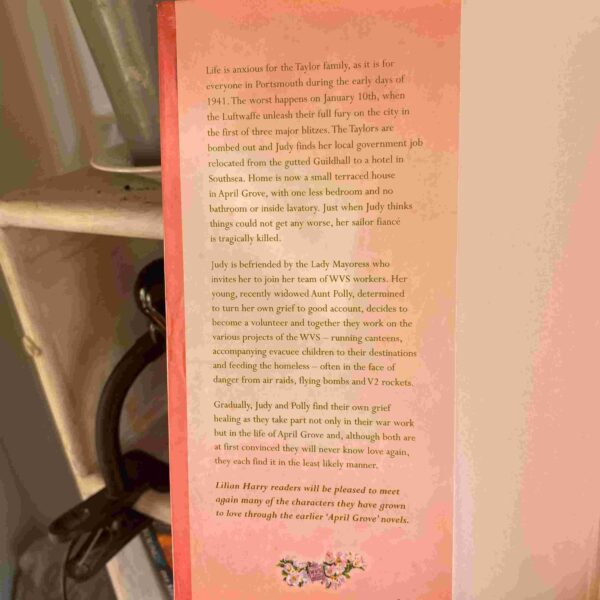 Life is anxious for the Taylor family, as it is for
everyone in Portsmouth during the early days of
1941. The worst happens on January 10th, when
the Luftwaffe unleash their full fury on the city in
the first of three major blitzes. The Taylors are
bombed out and Judy finds her local government job
relocated from the gutted Guildhall to a hotel in
Southsea. Home is now a small terraced house
in April Grove, with one less bedroom and no
bathroom or inside lavatory. Just when Judy thinks
things could not get any worse, her sailor fiancé
is tragically killed.
Judy is befriended by the Lady Mayoress who
invites her to join her team of WVS workers. Her
young, recently widowed Aunt Polly, determined
to turn her own grief to good account, decides to
become a volunteer and together they work on the
various projects of the WVS – running canteens,
accompanying evacuee children to their destinations
and feeding the homeless – often in the face of
danger from air raids, flying bombs and V2 rockets.
Gradually, Judy and Polly find their own grief
healing as they take part not only in their war work
but in the life of April Grove and, although both are
at first convinced they will never know love again,
they each find it in the least likely manner.
Lilian Harry readers will be pleased to meet
again many of the characters they have grown
to love through the earlier ‘April Grove’ novels.